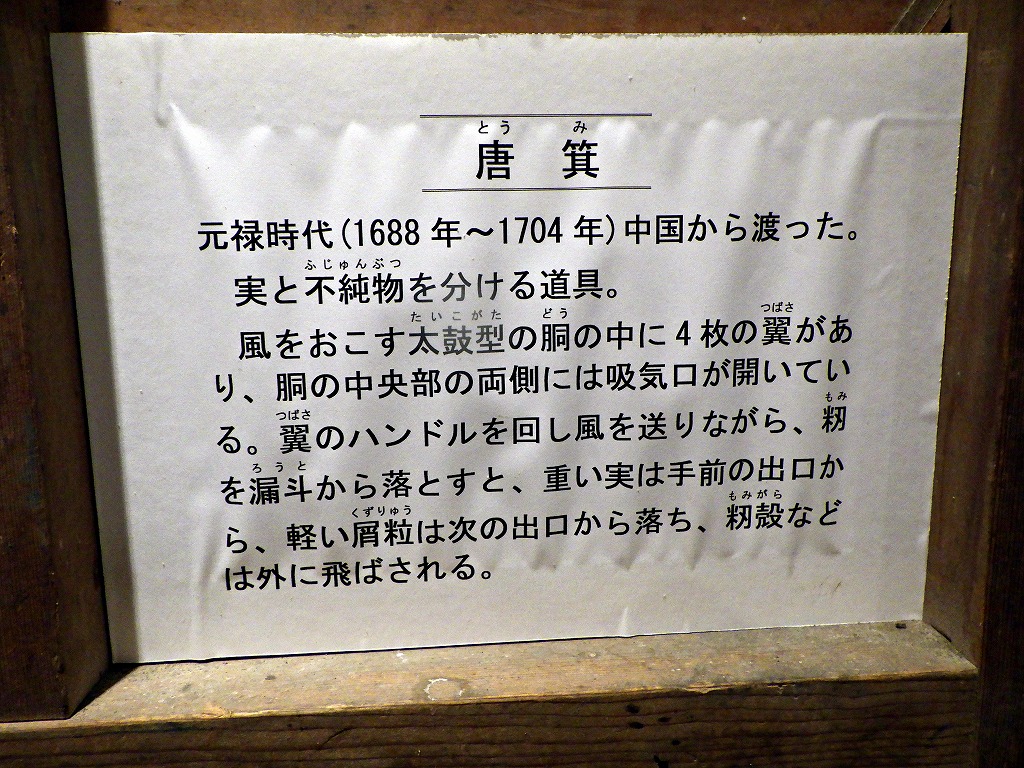 とう み
唐箕
元禄時代(1688年～1704年)中国から渡った。
ふじゅんぶつ
実と不純物を分ける道具。
たいこがた どう つばさ
風をおこす太鼓型の胴の中に4枚の翼があ
り、胴の中央部の両側には吸気口が開いてい
つばさ もみ
る。翼のハンドルを回し風を送りながら、籾
ろうと
を漏斗から落とすと、重い実は手前の出口か
くずりゅう もみがら
ら、軽い屑粒は次の出口から落ち、籾殻など
は外に飛ばされる。